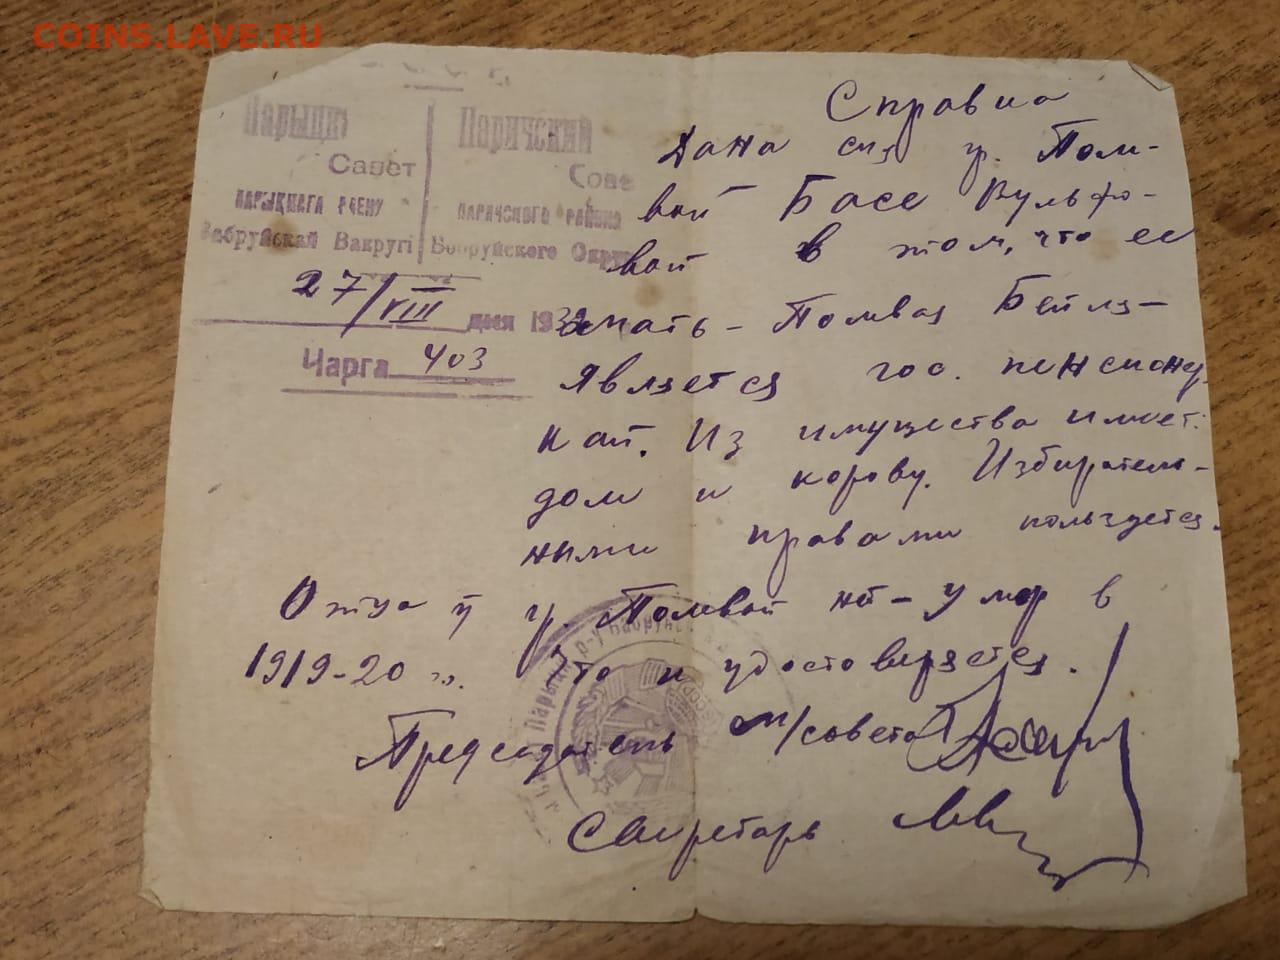 COINS.LAVE.RU
Парыцкі
Савет
ПАРЫЦКАГА РАЕНУ
Бабруйскай Вакругі
Паричский
Совет
ПАРИЧСКОГО РАЙОНА
Бобруйского Округа
27/VIII дзеня 193
Чарга 403
Справка
Дана сия гр. Полл-
вой Басе Вульфо-
вой в том, что ее
мать - Бейля-
Является гос. пенсионер
кой. Из имущества имеет:
дом и корову. Избиратель-
ными правами пользуется.
Отца у гр. нет - умер в
1919-20 г. Что и удостоверяется.
Председатель м/совета
Секретарь